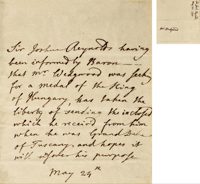 Sir Joshua Reynolds having
been informed by Baron —
that Mr. Wedgwood was
for a medal of the King
of Hungary, has taken the
liberty of sending the inclosed
which he received from him
when he was Grand Duke
of Tuscany, and hopes it
will answer his purpose
May 24th